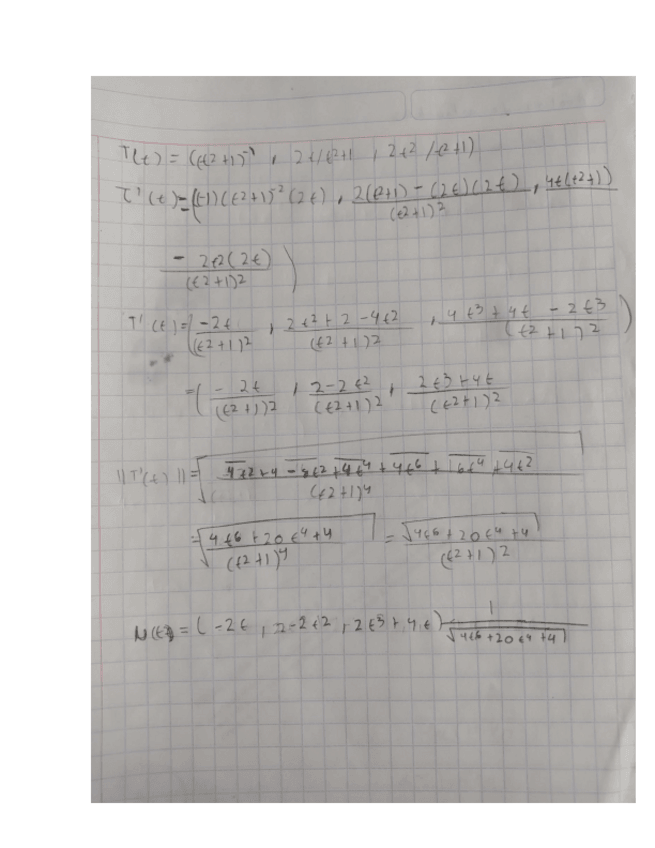 T(t) = ((t2+1)-1 , 2t/t2+1 , 2t2 /t2+1)
T'(t)=((-1)(t2+1)-2 (2t) , 2(t2+1) - (2t)(2t) / (t2+1)2 , 4t(t2+1)
- 2t2(2t) / (t2+1)2 )
T'(t)=( -2t / (t2+1)2 , 2t2+2-4t2 / (t2+1)2 , 4t3+4t - 2t3 / (t2+1)2 )
=( - 2t / (t2+1)2 , 2-2t2 / (t2+1)2 , 2t3+4t / (t2+1)2
||T'(t)||=√ 4t2+4-8t2+4t4+4t6+16t4+4t2 / (t2+1)4
=√ 4t6+20t4+4 / (t2+1)4 = √4t6+20t4+4 / (t2+1)2
N(t)=(-2t , 2-2t2 , 2t3+4t) 1 / √4t6+20t4+4